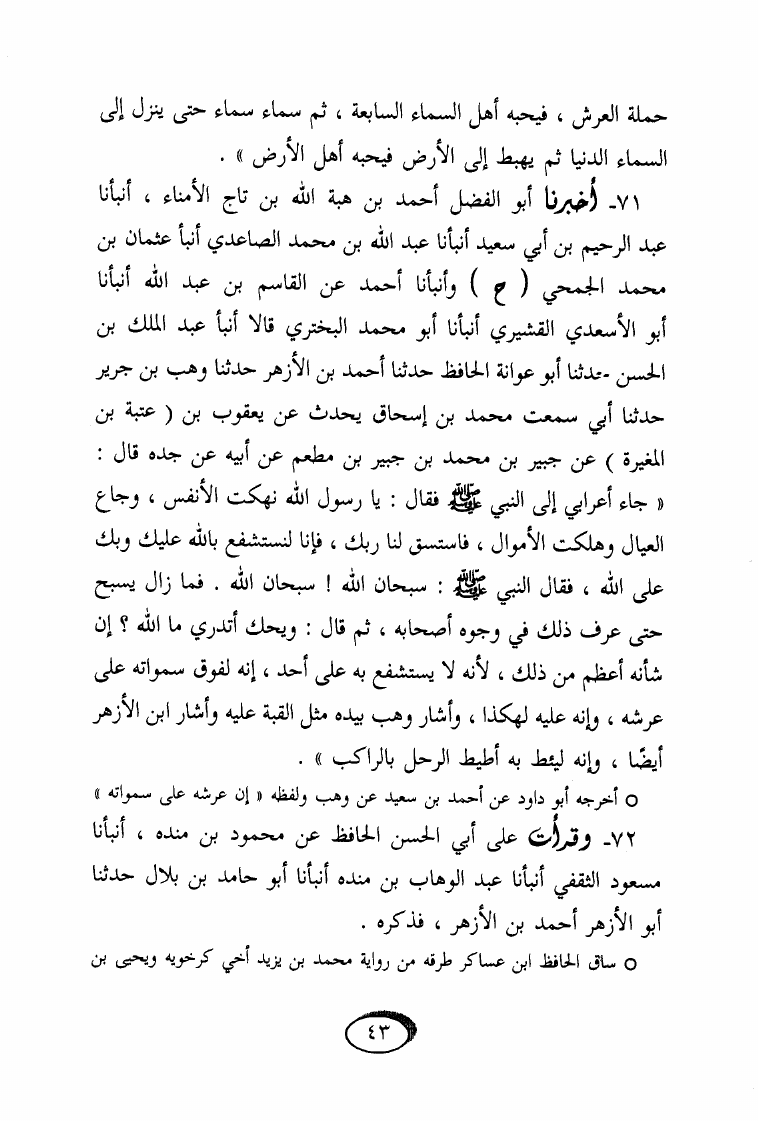 حملة العرش ، فيحبه أهل السماء السابعة ، ثم سماء سماء حتى ينزل إلى
السماء الدنيا ثم يهبط إلى الأرض فيحبه أهل الأرض » .
٧١ـ أخبرنا أبو الفضل أحمد بن هبة الله بن تاج الأمناء ، أنبأنا
عبد الرحيم بن أبي سعيد أنبأنا عبد الله بن محمد الصاعدي أنبأ عثمان بن
محمد الجمحي ( ح ) وأنبأنا أحمد عن القاسم بن عبد الله أنبأنا
أبو الأسعدي القشيري أنبأنا أبو محمد البختري قالا أنبأ عبد الملك بن
الحسن حدثنا أبو عوانة الحافظ حدثنا أحمد بن الأزهر حدثنا وهب بن جرير
حدثنا أبي سمعت محمد بن إسحاق يحدث عن يعقوب بن ( عتبة بن
المغيرة ) عن جبير بن محمد بن جبير بن مطعم عن أبيه عن جده قال :
« جاء أعرابي إلى النبي ﷺ فقال : يا رسول الله نهكت الأنفس ، وجاع
العيال وهلكت الأموال ، فاستسق لنا ربك ، فإنا لنستشفع بالله عليك وبك
على الله ، فقال النبي ﷺ : سبحان الله ! سبحان الله . فما زال يسبح
حتى عرف ذلك في وجوه أصحابه ، ثم قال : ويحك أتدري ما الله ؟ إن
شأنه أعظم من ذلك ، لأنه لا يستشفع به على أحد ، إنه لفوق سمواته على
عرشه ، وإنه عليه لهكذا ، وأشار وهب بيده مثل القبة عليه وأشار ابن الأزهر
أيضًا ، وإنه ليئط به أطيط الرحل بالراكب » .
○ أخرجه أبو داود عن أحمد بن سعيد عن وهب ولفظه « إن عرشه على سمواته »
٧٢ـ وقرأت على أبي الحسن الحافظ عن محمود بن منده ، أنبأنا
مسعود الثقفي أنبأنا عبد الوهاب بن منده أنبأنا أبو حامد بن بلال حدثنا
أبو الأزهر أحمد بن الأزهر ، فذكره .
○ ساق الحافظ ابن عساكر طرقه من رواية محمد بن يزيد أخي كرخويه ويحيى بن
٤٣